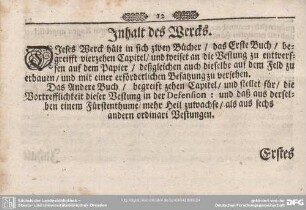 12
Inhalt des Wercks.
DJeses Werck hält in sich zwey Bücher / das Erste Buch / be-
greifft vierzehen Capitel / und weiset an die Vestung zu entwerf-
fen auf dem Papier / deßgleichen auch dieselbe auf dem Feld zu
erbauen / und mit einer erforderlichen Besatzung zu versehen.
Das Andere Buch / begreift zehen Capitel / und stellet für / die
Vortrefflichkeit dieser Vestung in der Defension: und daß aus dersel-
ben einem Fürstenthume mehr Heil zuwachse / als aus sechs
andern ordinari Vestungen.
Erstes
Deutsche Forschungsgemeinschaft